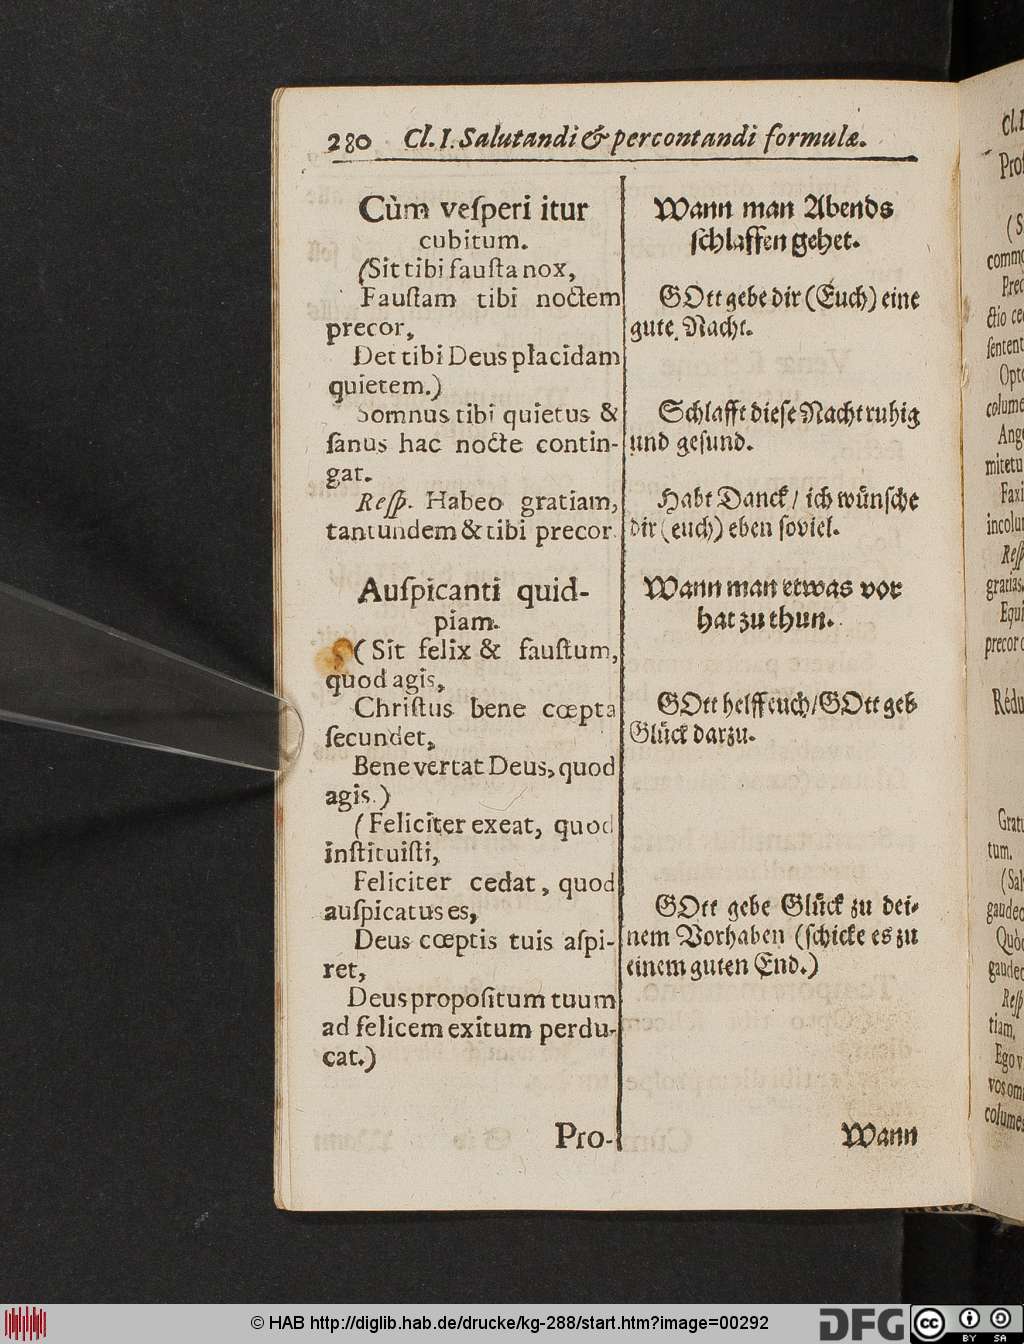 280 Cl. I. Salutandi & percontandi formulæ.
Cùm veſperi itur
cubitum.
(Sit tibi fauſta nox,
Fauſtam tibi noctem
precor,
Det tibi Deus placidam
quietem.)
Somnus tibi quietus &
ſanus hac nocte contin-
gat.
Reſp. Habeo gratiam,
tantundem & tibi precor.
Auſpicanti quid-
piam.
(Sit felix & fauſtum,
quod agis,
Chriſtus bene cœpta
ſecundet,
Bene vertat Deus, quod
agis.)
(Feliciter exeat, quod
inſtituiſti,
Feliciter cedat, quod
auſpicatus es,
Deus cœptis tuis aſpi-
ret,
Deus propoſitum tuum
ad felicem exitum perdu-
cat.)
Pro-
Wann man Abends
ſchlaffen gehet.
GOtt gebe dir (Euch) eine
gute Nacht.
Schlafft dieſe Nacht ruhig
und geſund.
Habt Danck / ich wünſche
dir (euch) eben ſoviel.
Wann man etwas vor
hat zu thun.
GOtt helff euch / GOtt geb
Glück darzu.
GOtt gebe Glück zu dei-
nem Vorhaben (ſchicke es zu
einem guten End.)
Wann
Cl. I
(S
commo
Prec
ctio ce
ſentent
Opto
colume
Ange
mitetu
Faxi
incolum
Reſp
gratias
Equi
precor
Rédu
Gratu
tum.
(Sal
gaudeo
Quòd
gaudeo
Reſp
tiam,
Ego v
vos om
columes
© HAB http://diglib.hab.de/drucke/kg-288/start.htm?image=00292
DFG
cc
BY SA